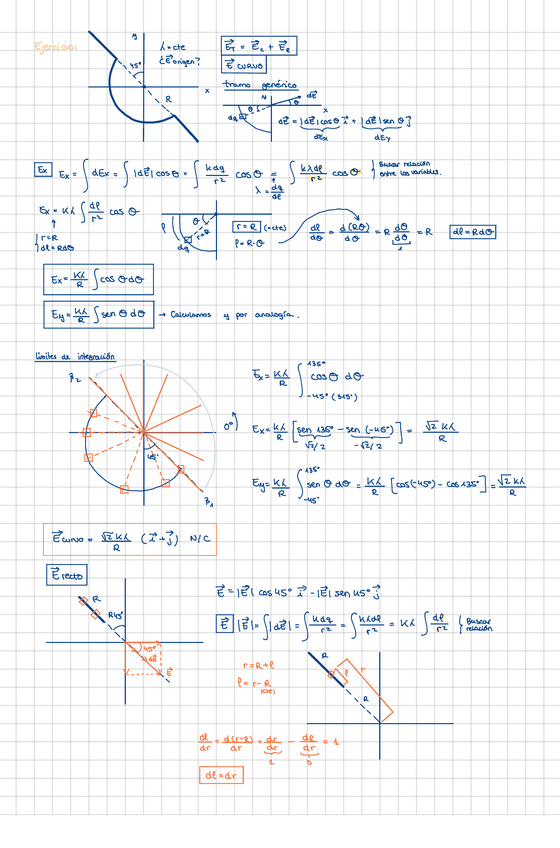 Ejercicio:
y
λ=cte
¿E⃗ origen?
45º
R
x
E⃗_T = E⃗_c + E⃗_R
E⃗ curvo
tramo genérico
y
dE⃗
θ
θ
dq
x
dE⃗ = |dE⃗|cos θ i⃗ + |dE⃗|sen θ j⃗
dEx
dEy
Ex
Ex = ∫ dEx = ∫ |dE⃗| cos θ = ∫ kdq/r² cos θ = ∫ kλdl/r² cos θ
λ = dq/dl
Buscar relación
entre las variables.
Ex = Kλ ∫ dl/r² cos θ
r=R
dl=Rdθ
l
θ
r=R
dq
r=R (=cte)
l=R·θ
dl/dθ = d(Rθ)/dθ = R dθ/dθ = R
1
dl=Rdθ
Ex = Kλ/R ∫ cos θ dθ
Ey = Kλ/R ∫ sen θ dθ → Calculamos y por analogía.
límites de integración
β2
0º
45º
β1
Ex = Kλ/R ∫ cos θ dθ
135º
-45º (315º)
Ex = Kλ/R [sen 135º - sen (-45º)] = √2 Kλ/R
√2/2
-√2/2
Ey = Kλ/R ∫ sen θ dθ = Kλ/R [cos(-45º) - cos 135º] = √2 Kλ/R
135º
-45º
E⃗curvo = √2 Kλ/R (i⃗ + j⃗) N/C
E⃗ recto
R
R
45º
45º
dE⃗
E⃗
E⃗ = |E⃗| cos 45º i⃗ - |E⃗| sen 45º j⃗
E⃗ |E⃗| = ∫ |dE⃗| = ∫ kdq/r² = ∫ kλdl/r² = Kλ ∫ dl/r²
Buscar
relación
r = R+l
l = r-R
(cte)
R
l
r
R
dl/dr = d(r-R)/dr = dr/dr - dR/dr = 1
1
0
dl=dr